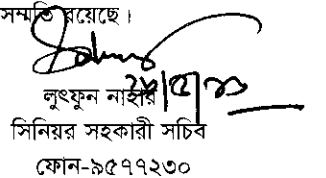 সম্মতি রয়েছে।
২৮/৫/২০
লুৎফুন নাহার
সিনিয়র সহকারী সচিব
ফোন-৯৫৭৭২৩০